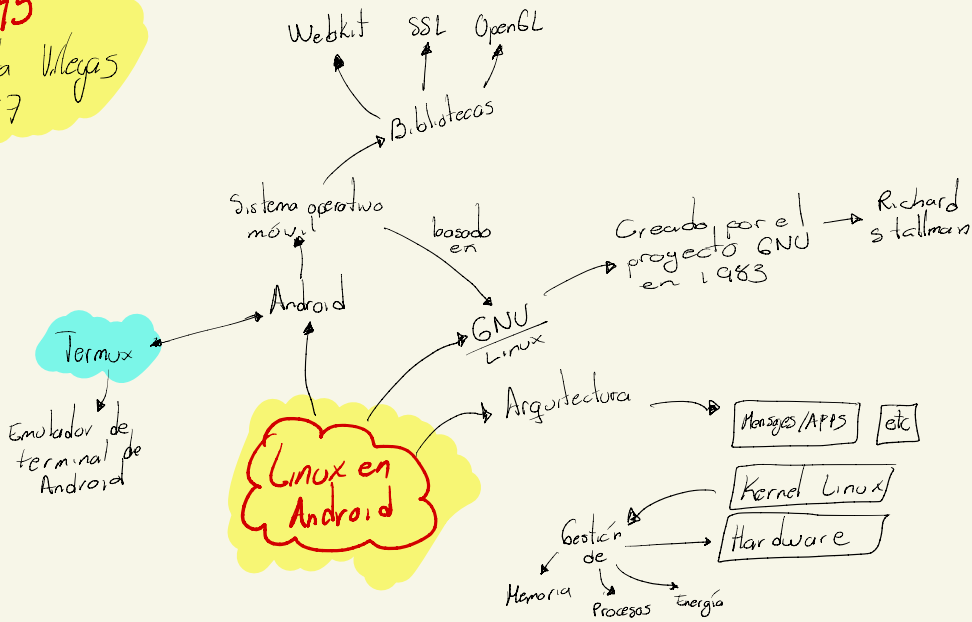 Villegas
7
Webkit SSL OpenGL
Bibliotecas
Sistema operativo
móvil
basado
en
Creado por el
proyecto GNU
en 1983
Richard
stallman
Android
GNU
Linux
Termux
Emulador de
terminal de
Android
Linux en
Android
Arquitectura
Mensajes/APPS
etc
Kernel Linux
Hardware
Gestión
de
Memoria
Procesos
Energía